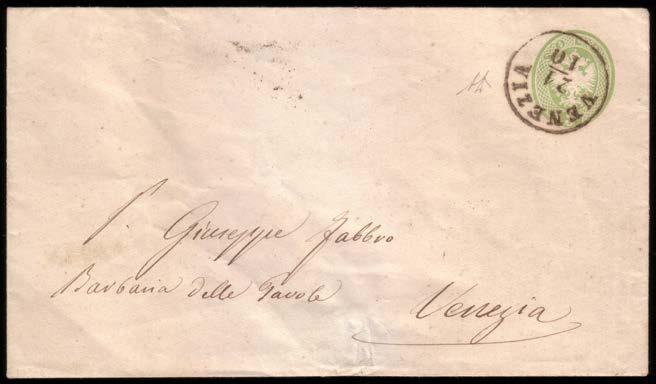 VENEZIA
24
10
S. Giuseppe Fabbro
Barbaria delle Tavole
Venezia